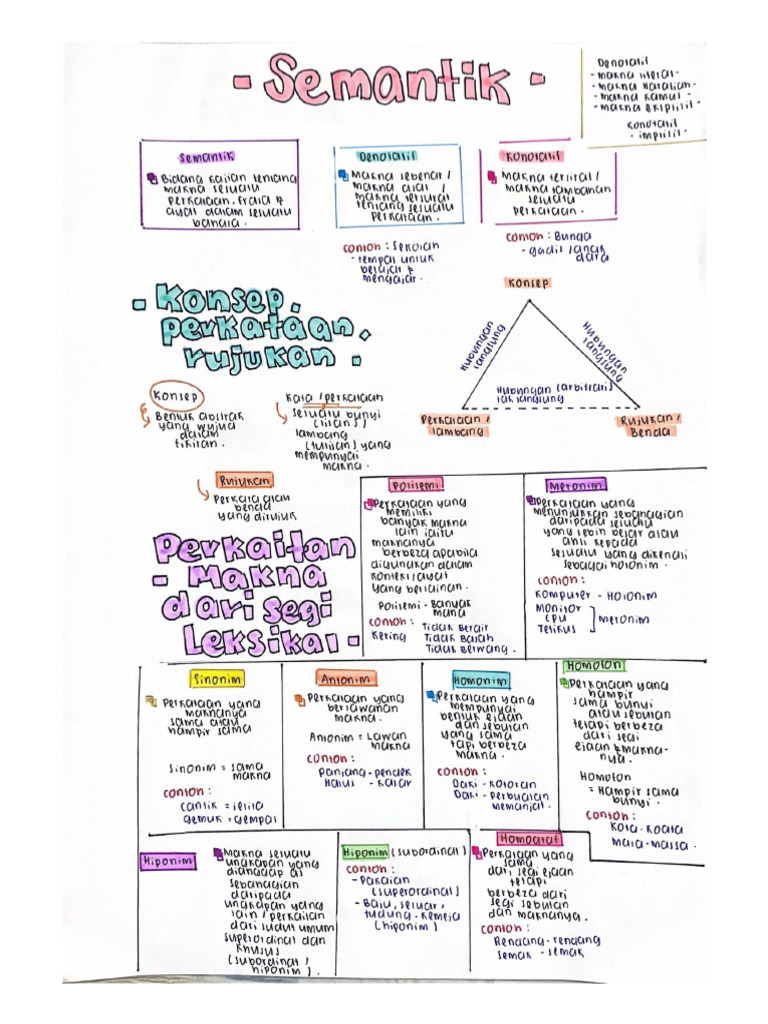 - Semantik -
Denotatif
- makna literal -
- makna harafiah -
- makna kamus -
- makna eksplisit -
Konotatif
- implisit -
Semantik
Bidang kajian tentang
makna sesuatu
perkataan, frasa &
ayat dalam sesuatu
bahasa.
Denotatif
Makna sebenar /
makna asal /
makna tersurat
tentang sesuatu
perkataan.
contoh : Sekolah
- tempat untuk
belajar &
mengajar.
Konotatif
Makna tersirat /
makna tambahan
sesuatu
perkataan.
contoh : Bunga
- gadis / anak
dara
- Konsep,
perkataan,
rujukan -
Konsep
Hubungan
langsung
Hubungan
langsung
Hubungan (arbitrari)
tak langsung
Perkataan /
lambang
Rujukan /
Benda
Konsep
Bentuk abstrak
yang wujud
dalam
fikiran.
Kata / perkataan
Sesuatu bunyi
(lisan) /
lambang
(tulisan) yang
mempunyai
makna.
Rujukan
Perkara atau
benda
yang dirujuk
Perkaitan
- Makna
dari segi
Leksikal -
Polisemi
Perkataan yang
memiliki
banyak makna
lain iaitu
maknanya
berbeza apabila
digunakan dalam
konteks / ayat
yang berlainan.
Polisemi - Banyak
makna
contoh :
Kering
Tidak Berair
Tidak Basah
Tidak Berwang.
Meronim
Perkataan yang
menunjukkan sebahagian
daripada sesuatu
yang lebih besar atau
ahli kepada
sesuatu yang dikenali
sebagai holonim.
contoh :
Komputer - Holonim
monitor
CPU
Tetikus
meronim
Sinonim
Perkataan yang
maknanya
sama atau
hampir sama
Sinonim = sama
makna
contoh :
cantik = jelita
gemuk = gempal
Antonim
Perkataan yang
berlawanan
makna.
Antonim = Lawan
makna
contoh :
Panjang - pendek
Halus - kasar
Homonim
Perkataan yang
mempunyai
bentuk ejaan
dan sebutan
yang sama
tapi berbeza
makna.
contoh :
Daki - kotoran
Daki - perbuatan
memanjat.
Homofon
Perkataan yang
hampir
sama bunyi
atau sebutan
tetapi berbeza
dari segi
ejaan & makna-
nya.
Homofon
= Hampir sama
bunyi.
contoh :
Kota - koata
masa - massa.
Hiponim
Makna sesuatu
ungkapan yang
dianggap as
sebahagian
daripada
ungkapan yang
lain / perkaitan
dari sudut umum
superordinat dan
khusus
(subordinat /
hiponim).
Hiponim (subordinat)
contoh :
- Pakaian
(superordinat)
- Baju, seluar,
tudung, kemeja
(hiponim)
Homograf
Perkataan yang
sama
dari segi ejaan
tetapi
berbeza dari
segi sebutan
dan maknanya.
contoh :
Rendang - rendang
Semak - semak